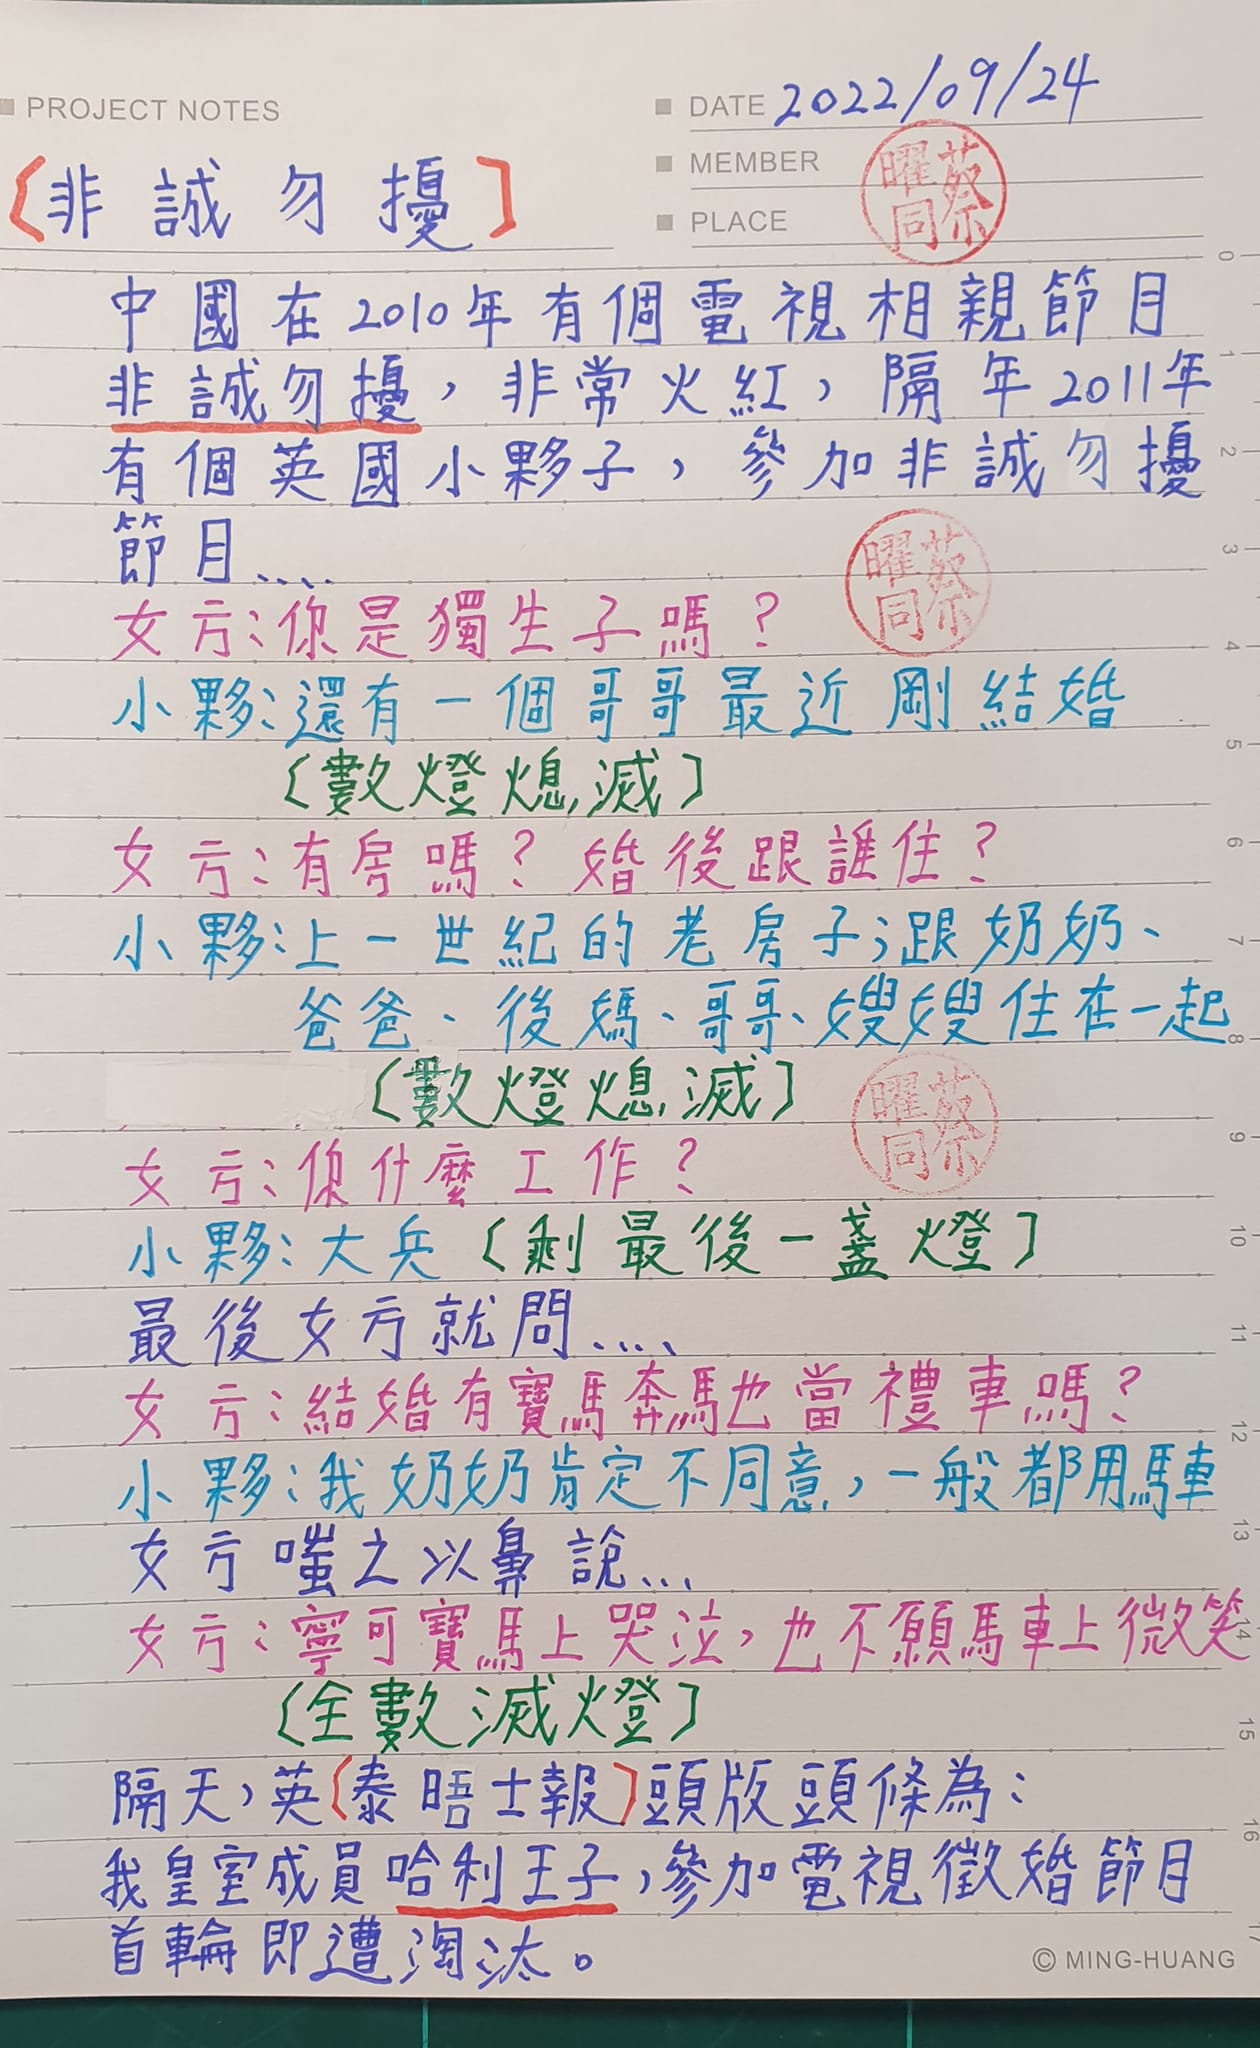 PROJECT NOTES
DATE 2022/09/24
MEMBER
PLACE
蔡曜同
〔非誠勿擾〕
中國在2010年有個電視相親節目
非誠勿擾,非常火紅,隔年2011年
有個英國小夥子,參加非誠勿擾
節目....
蔡曜同
女方:你是獨生子嗎?
小夥:還有一個哥哥最近剛結婚
〔數燈熄滅〕
女方:有房嗎?婚後跟誰住?
小夥:上一世紀的老房子;跟奶奶、
爸爸、後媽、哥哥、嫂嫂住在一起
〔數燈熄滅〕
蔡曜同
女方:你什麼工作?
小夥:大兵〔剩最後一盞燈〕
最後女方就問....
女方:結婚有寶馬奔馳也當禮車嗎?
小夥:我奶奶肯定不同意,一般都用馬車
女方嗤之以鼻說...
女方:寧可寶馬上哭泣,也不願馬車上微笑
〔全數滅燈〕
隔天,英〔泰晤士報〕頭版頭條為:
我皇室成員哈利王子,參加電視徵婚節目
首輪即遭淘汰。
© MING-HUANG
0
1
2
3
4
5
6
7
8
9
10
11
12
13
14
15
16
17